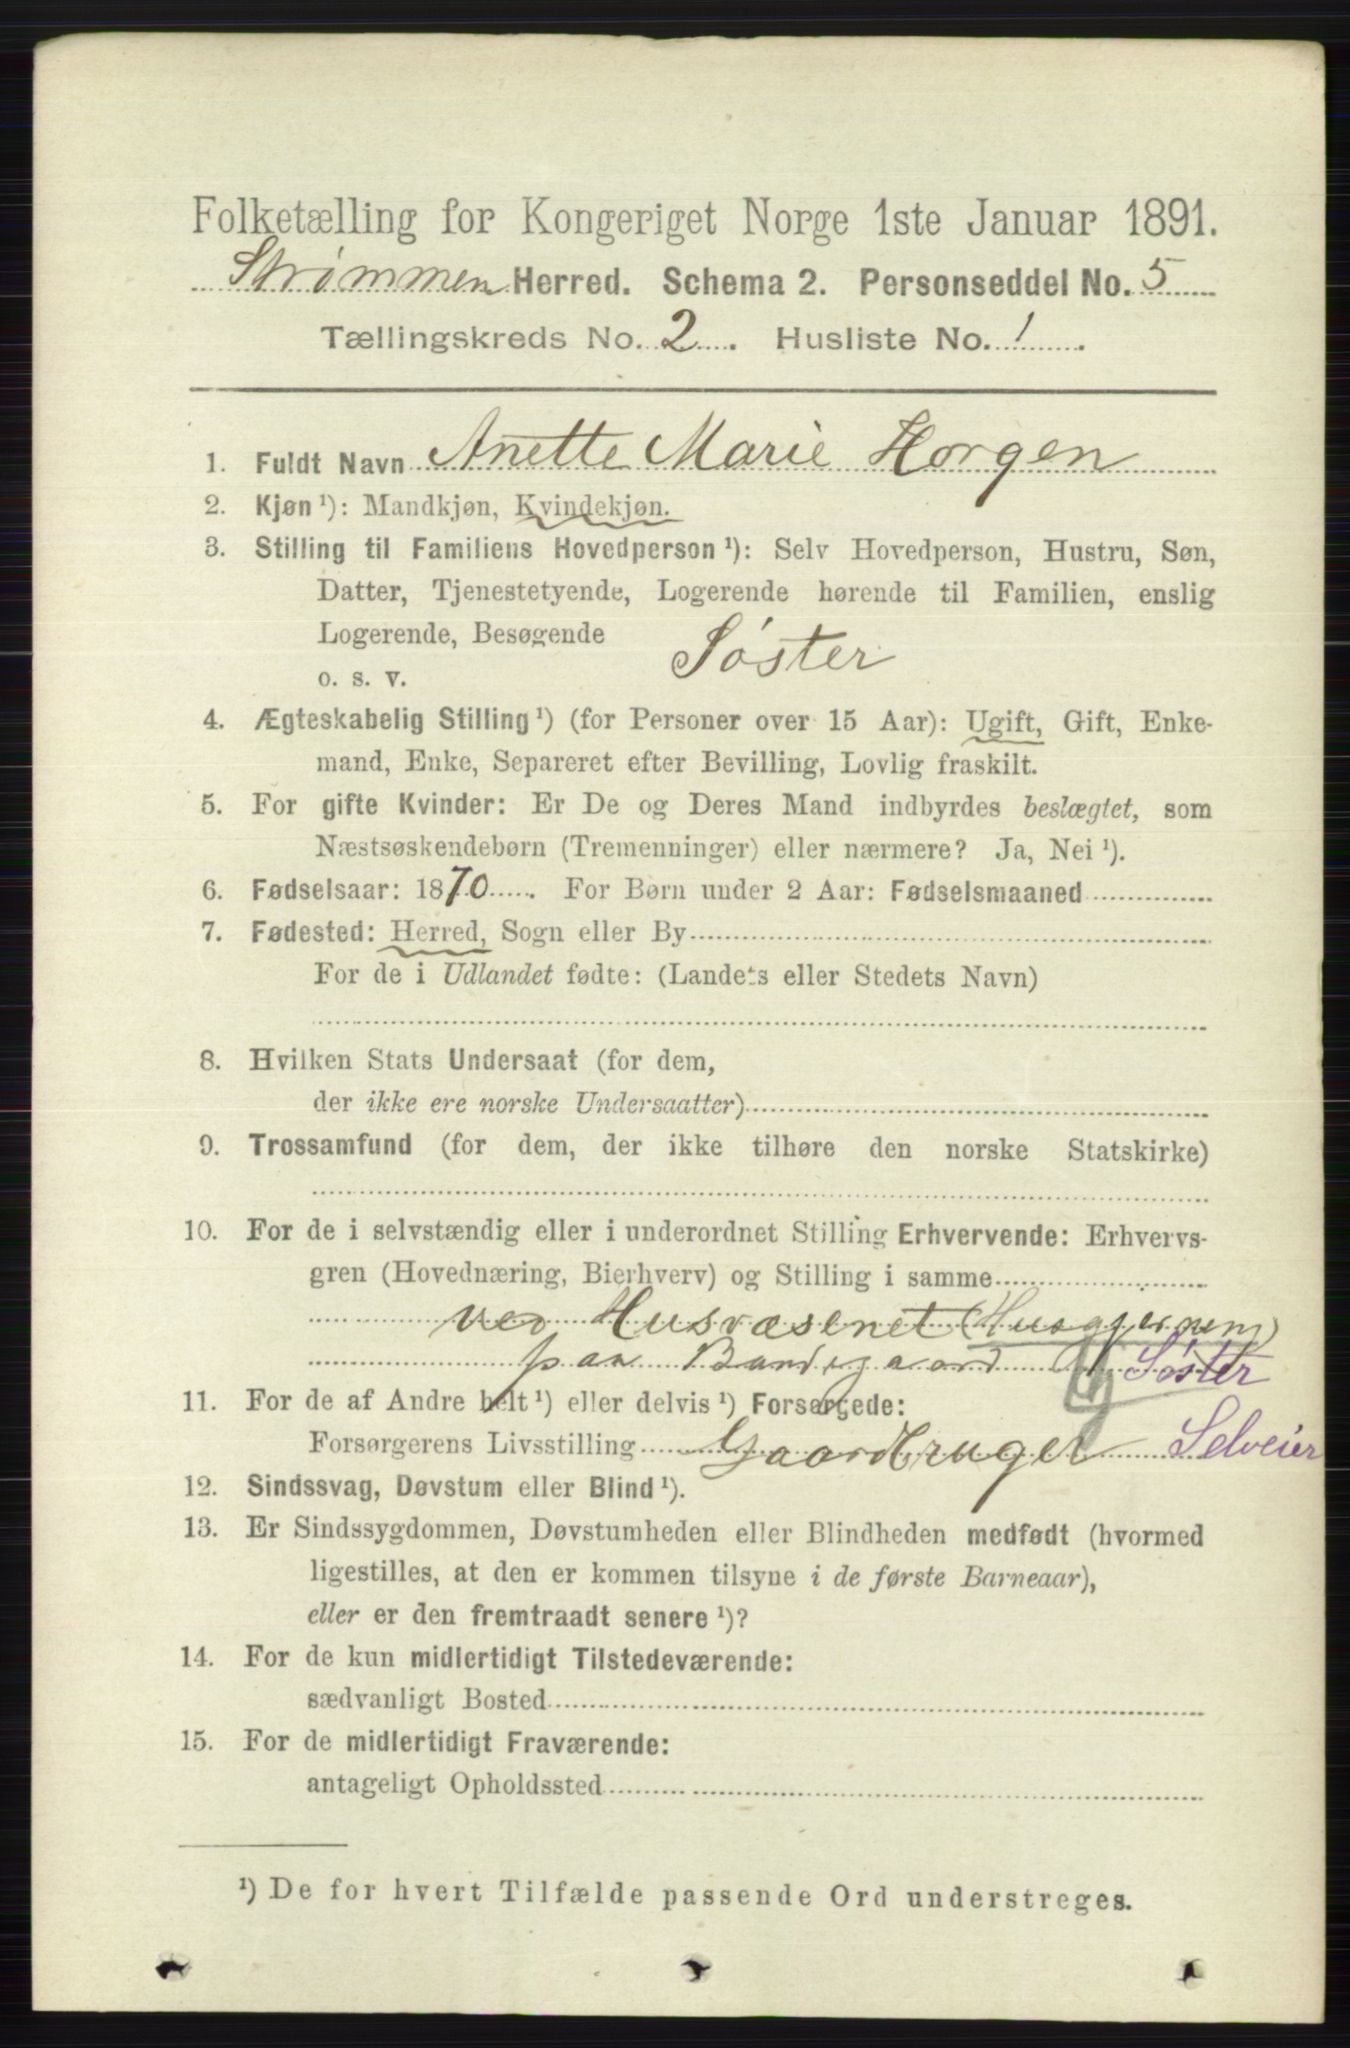 Folketælling for Kongeriget Norge 1ste Januar 1891.
Strømmen Herred. Schema 2. Personseddel No. 5
Tællingskreds No. 2. Husliste No. 1.
1. Fuldt Navn Anette Marie Horgen
2. Kjøn ¹): Mandkjøn, Kvindekjøn.
3. Stilling til Familiens Hovedperson ¹): Selv Hovedperson, Hustru, Søn,
Datter, Tjenestetyende, Logerende hørende til Familien, enslig
Logerende, Besøgende
Søster
o. s. v.
4. Ægteskabelig Stilling ¹) (for Personer over 15 Aar): Ugift, Gift, Enke-
mand, Enke, Separeret efter Bevilling, Lovlig fraskilt.
5. For gifte Kvinder: Er De og Deres Mand indbyrdes beslægtet, som
Næstsøskendebørn (Tremenninger) eller nærmere? Ja, Nei ¹).
6. Fødselsaar: 1870. For Børn under 2 Aar: Fødselsmaaned
7. Fødested: Herred, Sogn eller By
For de i Udlandet fødte: (Landets eller Stedets Navn)
8. Hvilken Stats Undersaat (for dem,
der ikke ere norske Undersaatter)
9. Trossamfund (for dem, der ikke tilhøre den norske Statskirke)
10. For de i selvstændig eller i underordnet Stilling Erhvervende: Erhvervs-
gren (Hovednæring, Bierhverv) og Stilling i samme
ved Husvæsenet (Husgjerning)
paa Bondegaard Søster
11. For de af Andre helt ¹) eller delvis ¹) Forsørgede:
Forsørgerens Livsstilling Gaardbruger Selveier
12. Sindssvag, Døvstum eller Blind ¹).
13. Er Sindssygdommen, Døvstumheden eller Blindheden medfødt (hvormed
ligestilles, at den er kommen tilsyne i de første Barneaar),
eller er den fremtraadt senere ¹)?
14. For de kun midlertidigt Tilstedeværende:
sædvanligt Bosted
15. For de midlertidigt Fraværende:
antageligt Opholdssted
¹) De for hvert Tilfælde passende Ord understreges.